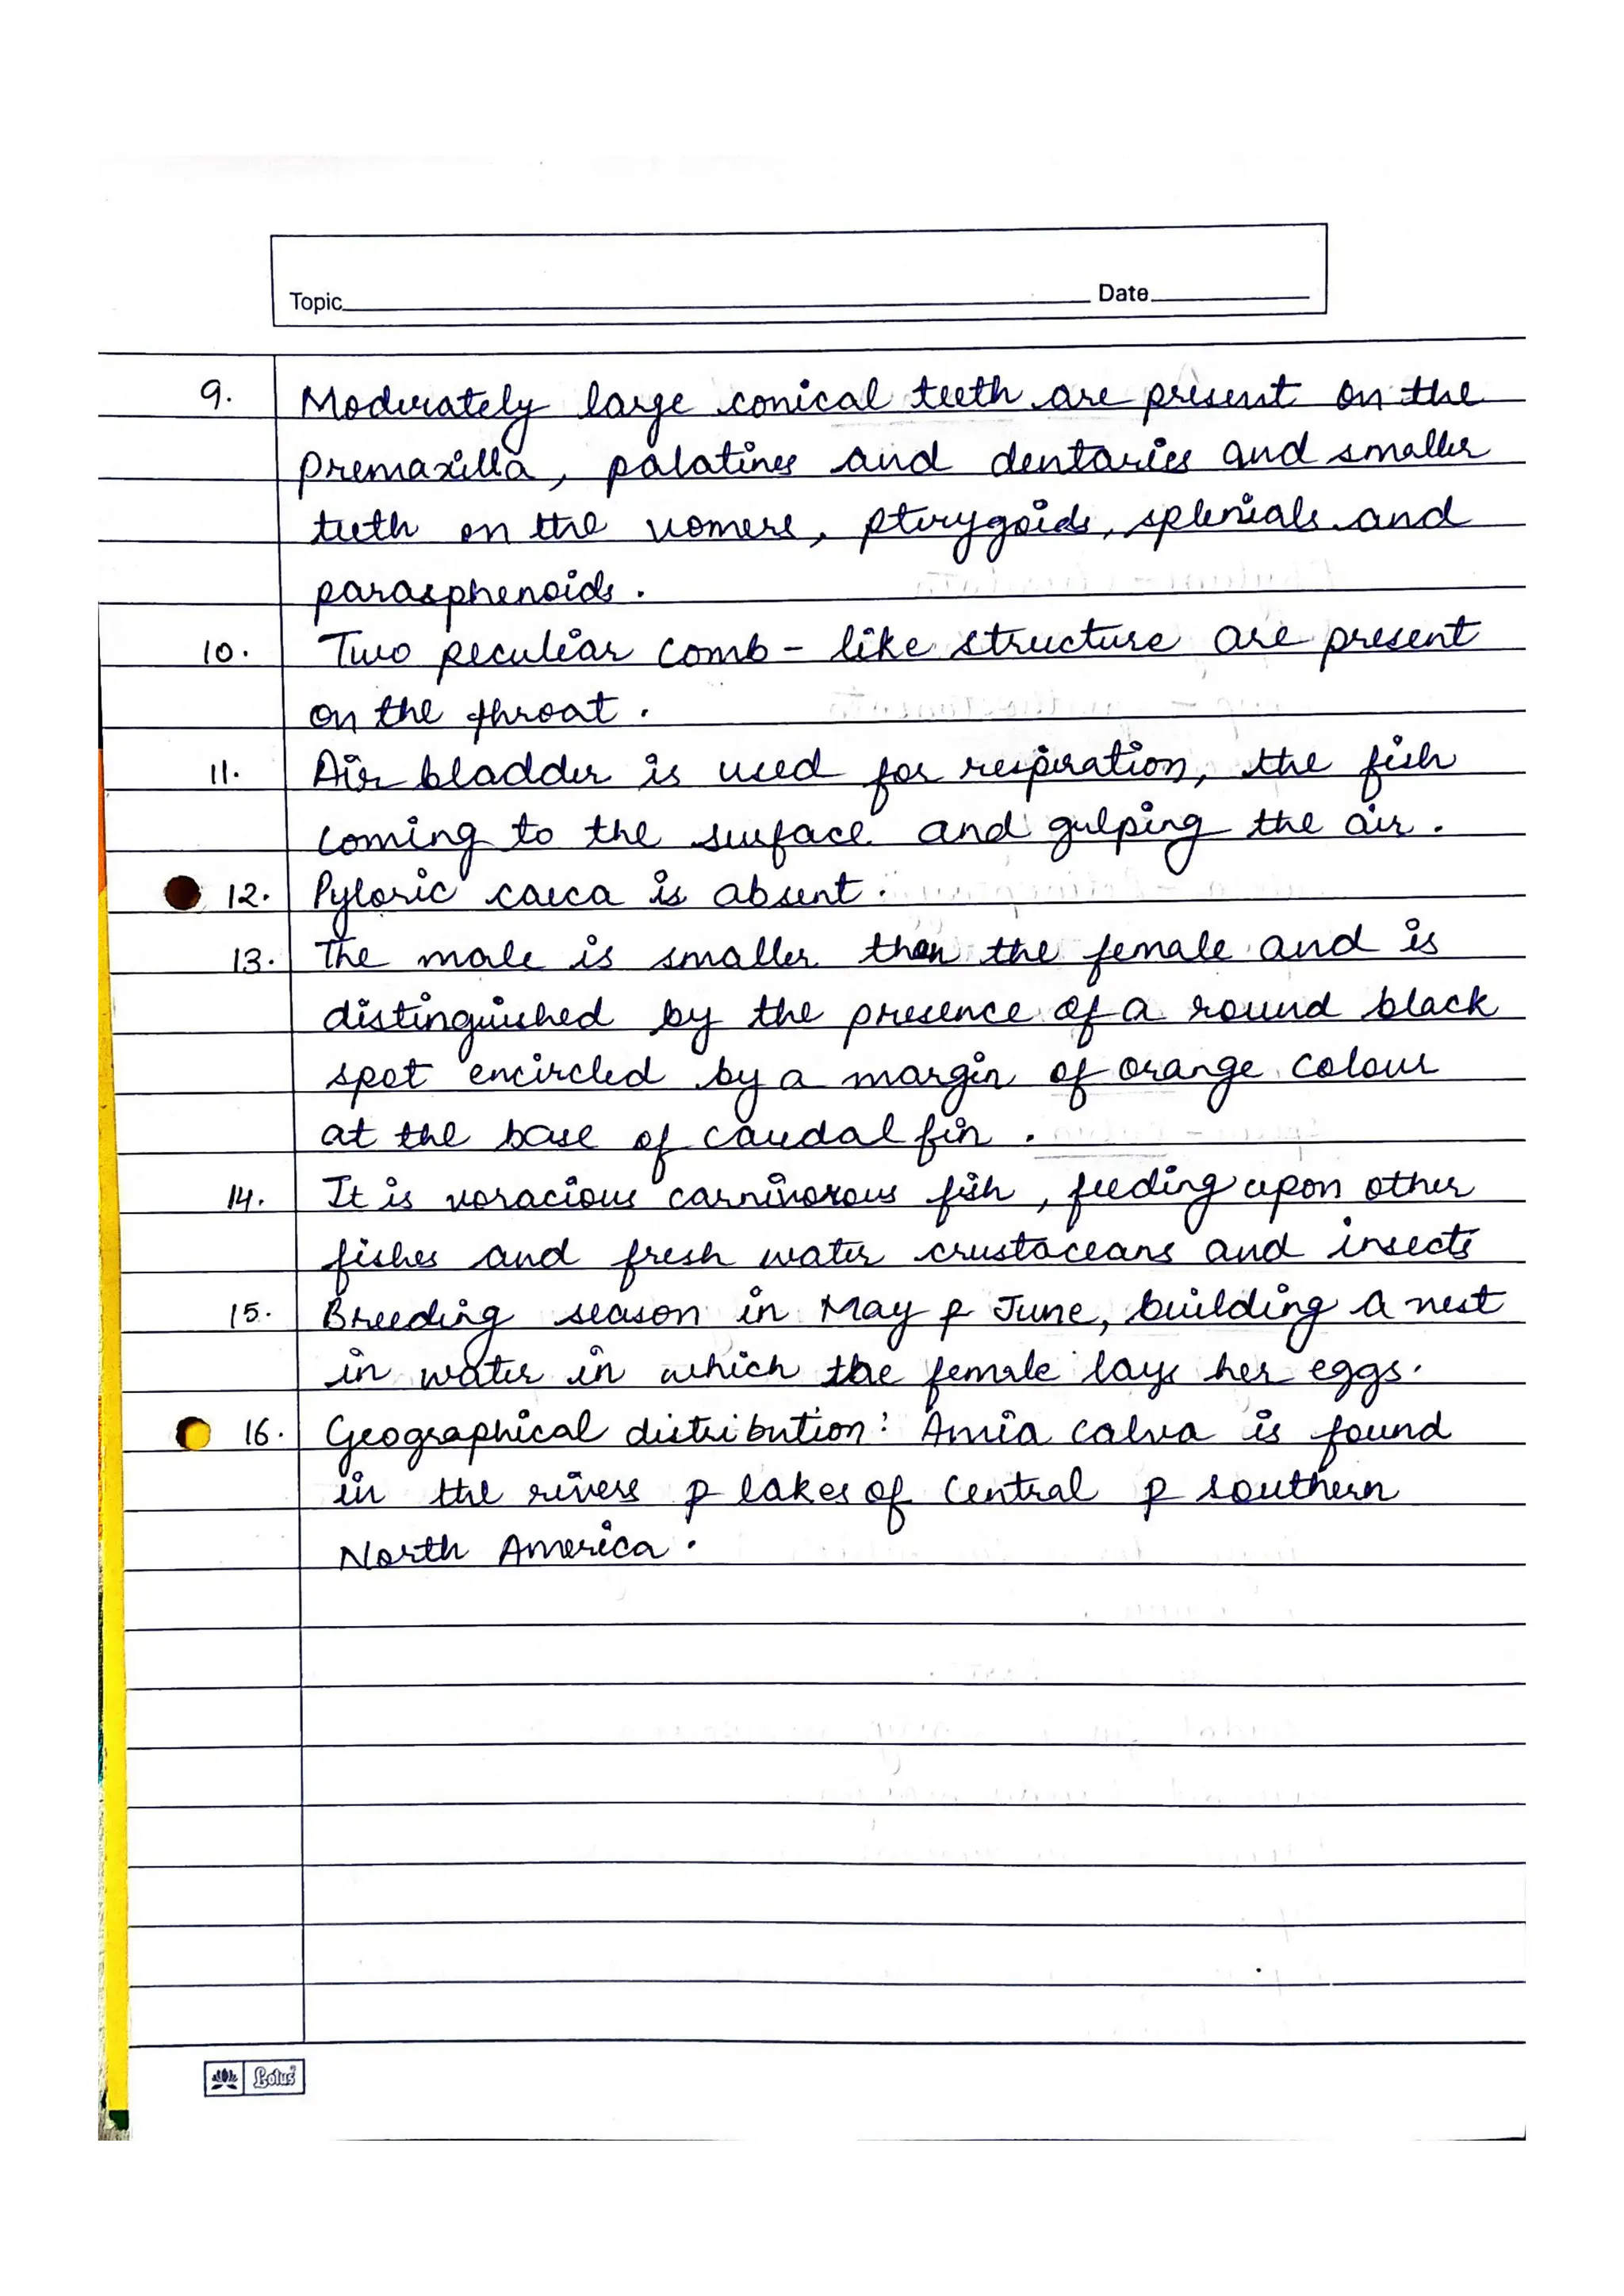 Topic Date
9. Moderately large conical teeth are present on the
premaxilla, palatines and dentaries and smaller
teeth on the vomers, pterygoids, splenials and
parasphenoids.
10. Two peculiar comb-like structure are present
on the throat.
11. Air bladder is used for respiration, the fish
coming to the surface and gulping the air.
12. Pyloric caeca is absent.
13. The male is smaller than the female and is
distinguished by the presence of a round black
spot encircled by a margin of orange colour
at the base of caudal fin.
14. It is voracious carnivorous fish, feeding upon other
fishes and fresh water crustaceans and insects
15. Breeding season in May & June, building a nest
in water in which the female lays her eggs.
16. Geographical distribution: Amia calva is found
in the rivers & lakes of Central & southern
North America.
Lotus